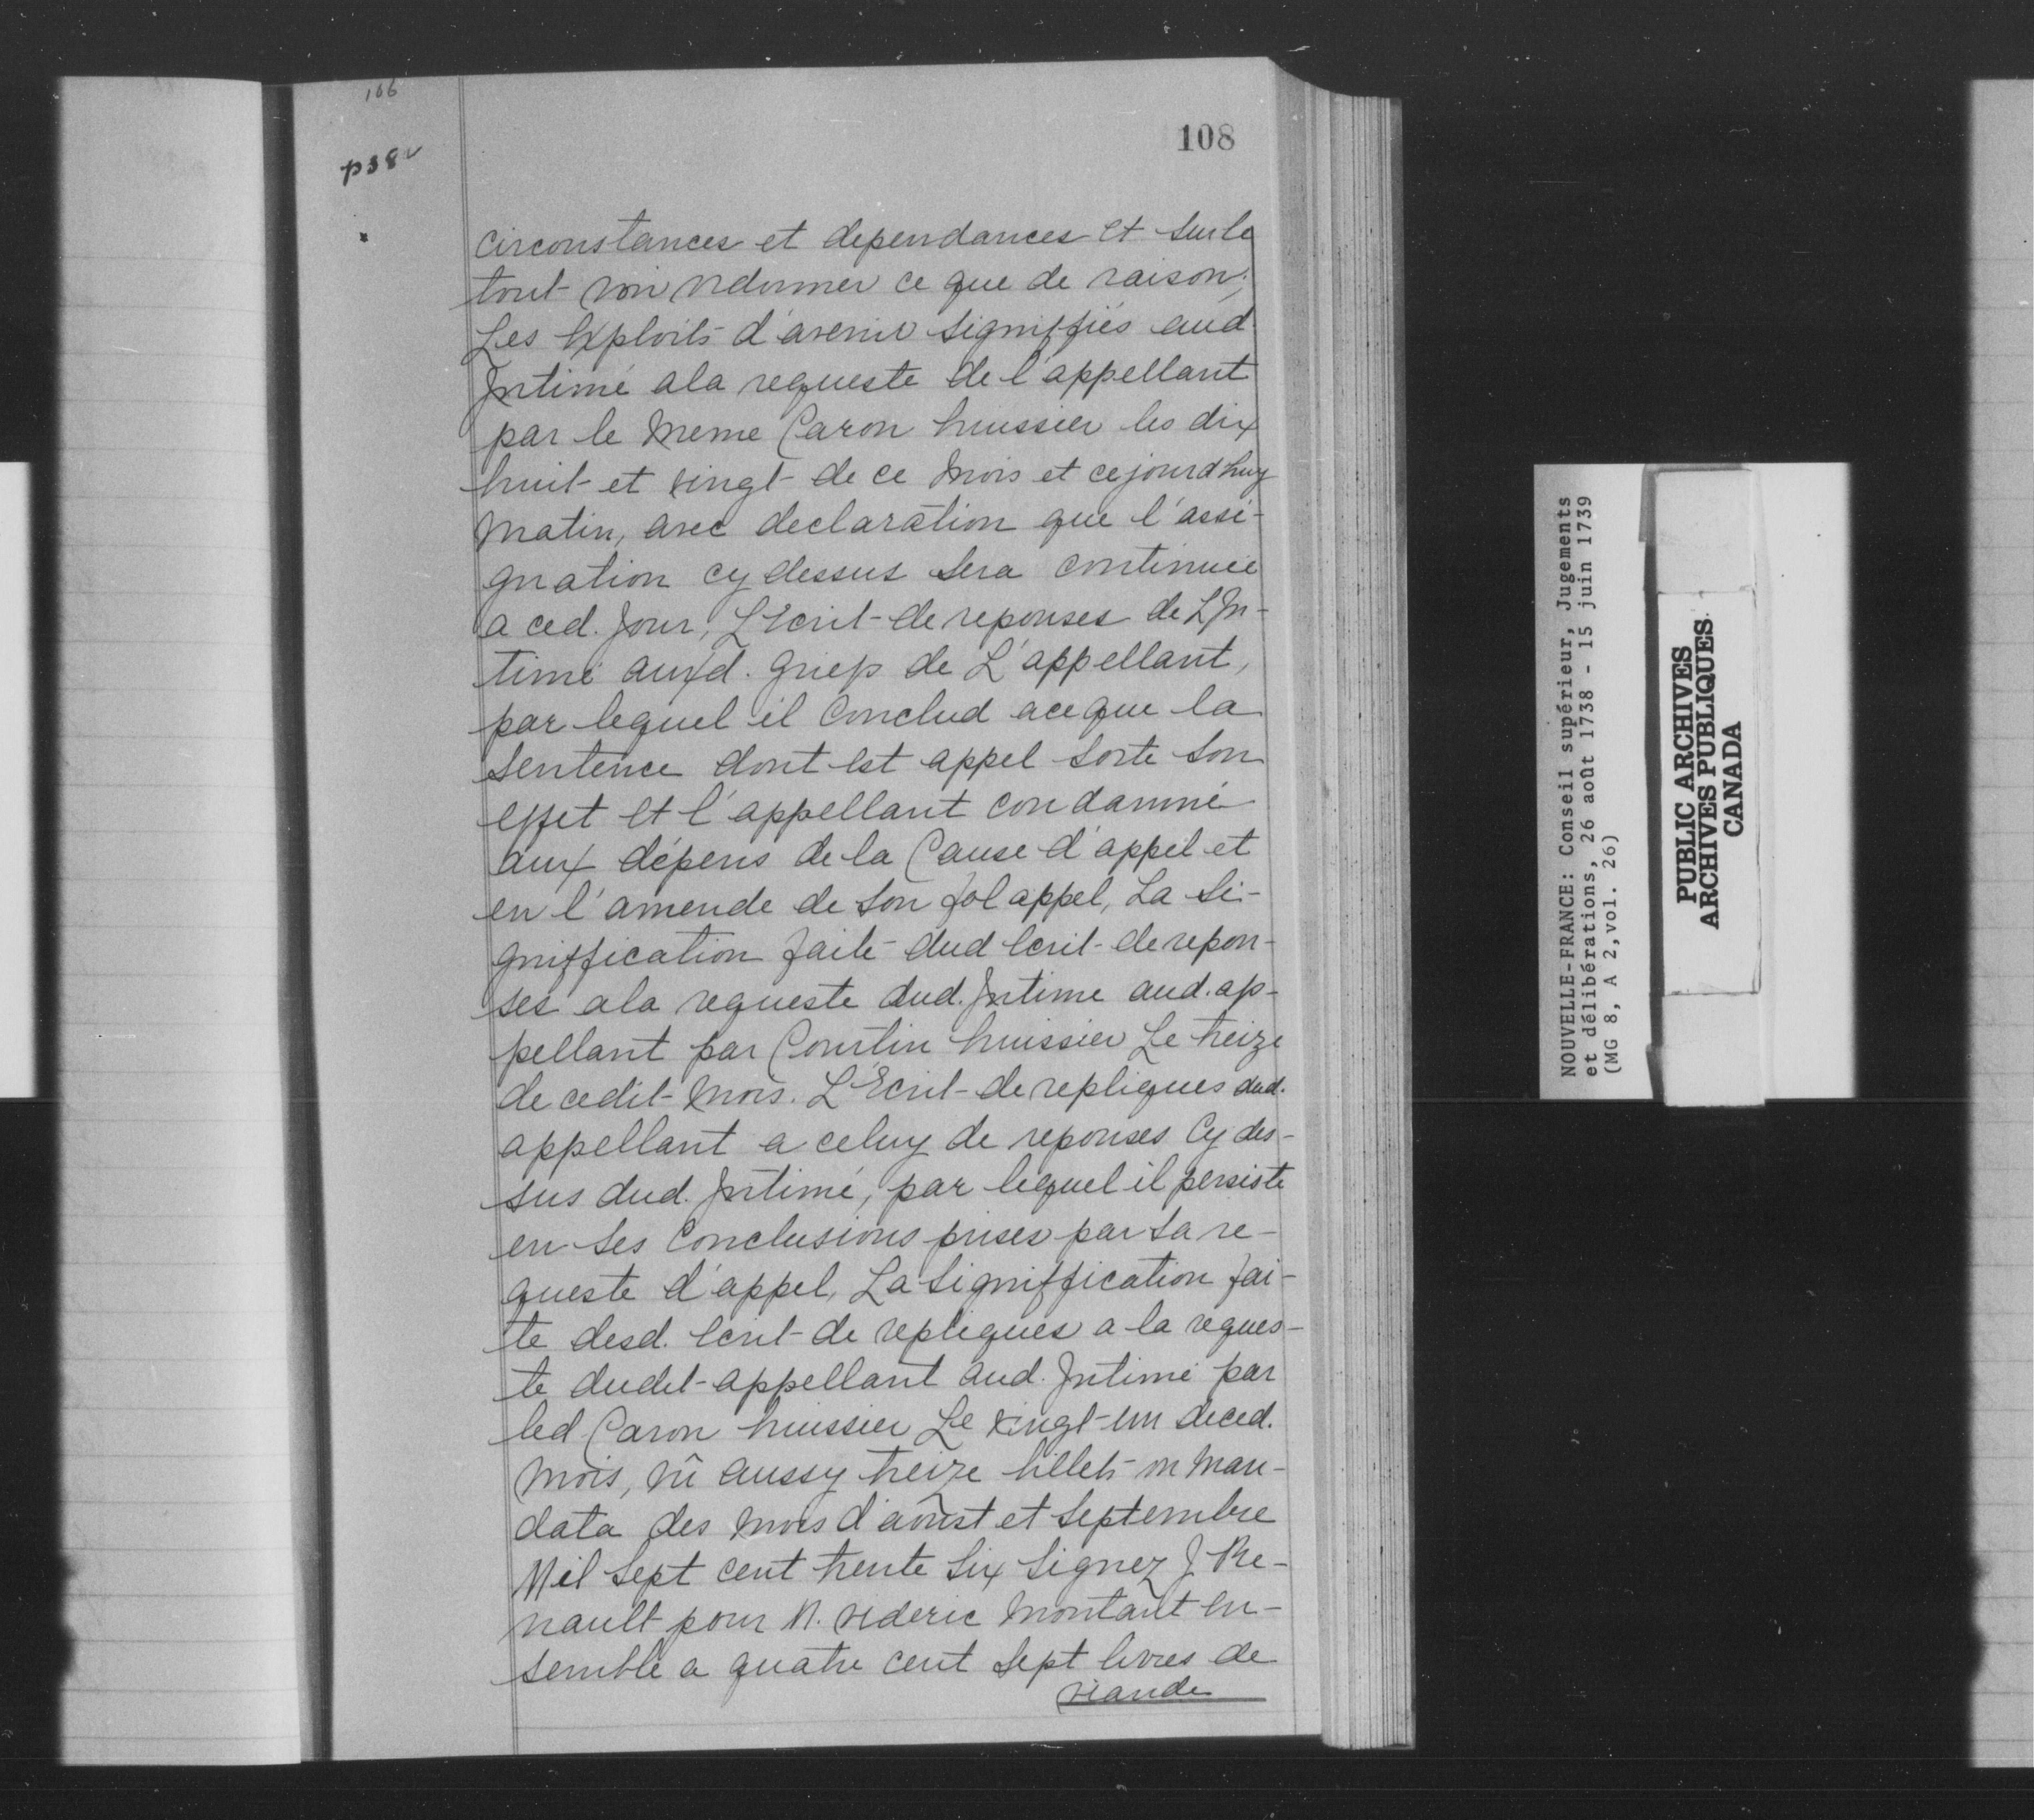 106
108
p38v
circonstances et dependances et sur le
tout voir ordonner ce que de raison,
Les Exploits d'avenir signiffiés aud
Intimé ala requeste de l'appellant
par le meme Caron huissier les dix
huit et vingt de ce mois et cejourdhuy
matin, avec declaration que l'assi-
gnation cy dessus sera continuée
a ced. Jour, L'Ecrit de reponses de L'In-
timé auxd. griefs de L'appellant,
par lequel il Conclud aceque la
sentence dont est appel sorte son
effet et l'appellant condamné
aux dépens de la Cause d'appel et
en l'amende de son fol appel, La si-
gniffication faite dud Ecrit de repon-
ses ala requeste dud. Intime aud. ap-
pellant par Courtin huissier Le treize
de cedit mois. L'Ecrit de repliques dud.
appellant a celuy de reponses Cy des-
sus dud. Intimé, par lequel il persiste
en ses Conclusions prises par sa re-
queste d'appel, La signiffication fai-
te desd. Ecrit de repliques a la reques-
te dudit appellant aud. Intimé par
led Caron huissier Le vingt-un deced.
mois, vû aussy treize billets ou man-
data des mois d'aoust et septembre
Mil sept cent trente six signez J. Re-
nault pour M. vederic montant en-
semble a quatre cent sept livres de
viande
NOUVELLE-FRANCE: Conseil supérieur, Jugements
et délibérations, 26 août 1738 - 15 juin 1739
(MG 8, A 2,vol. 26)
PUBLIC ARCHIVES
ARCHIVES PUBLIQUES
CANADA